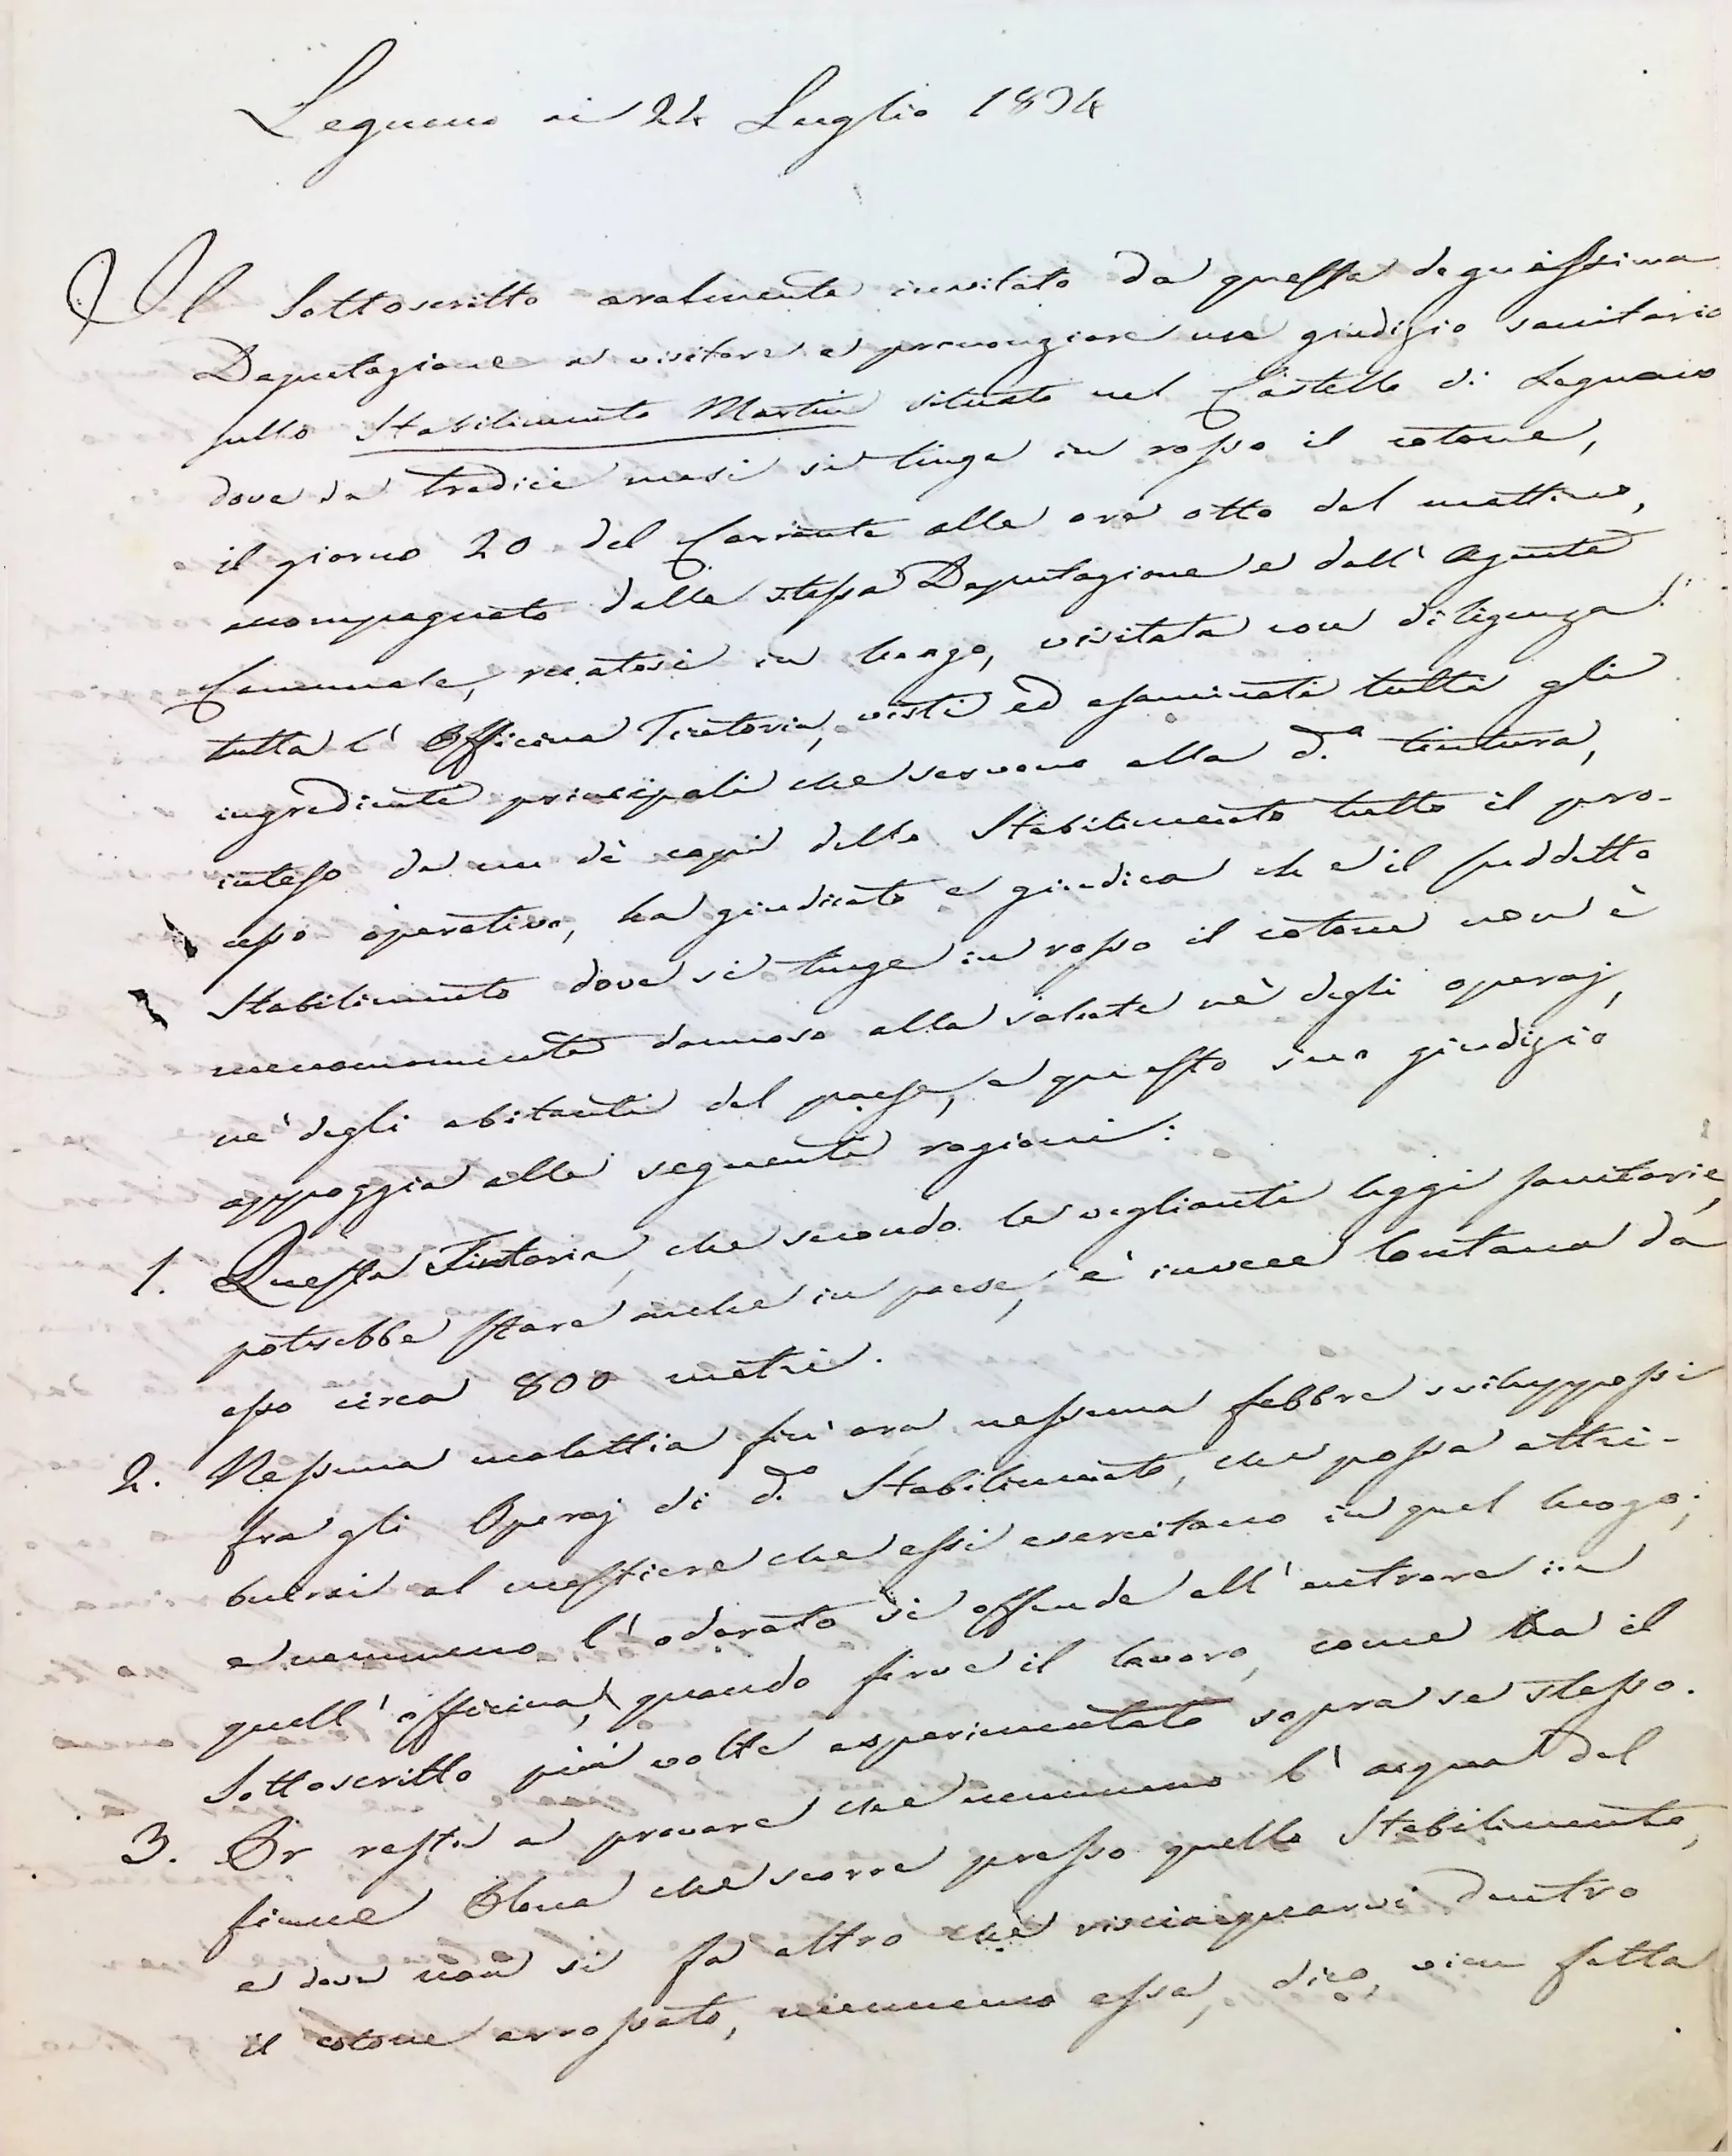 Legnano ai 24 Luglio 1834
Il Sottoscritto oralmente invitato da questa degnissima
Deputazione a visitare e pronunziare un giudizio sanitario
sullo Stabilimento Martin situato nel Castello di Legnano
dove da tredici mesi si tinge in rosso il cotone,
il giorno 20 del Corrente alle ore otto del mattino,
accompagnato dalla stessa Deputazione e dall' Agente
Comunale, recatosi in luogo, visitata con diligenza
tutta l' Officina Tintoria, visti ed esaminati tutti gli
ingredienti principali che servono alla d.a tintura,
inteso da un de' capi dello Stabilimento tutto il pro-
cesso operativo, ha giudicato e giudica che il suddetto
Stabilimento dove si tinge in rosso il cotone non è
menomamente dannoso alla salute nè degli operaj,
nè degli abitanti del paese, e questo suo giudizio
appoggia alle seguenti ragioni:
1. Questa Tintoria, che secondo le veglianti leggi sanitarie,
potrebbe stare anche in paese, è invece lontana da
esso circa 800 metri.
2. Nessuna malattia fin' ora, nessuna febbre sviluppossi
fra gli Operaj di d.o Stabilimento, che possa attri-
buirsi al mestiere che essi esercitano in quel luogo;
e nemmeno l' odorato si offende all' entrare in
quell' officina, quando ferve il lavoro, come ha il
Sottoscritto più volte esperimentato sopra se stesso.
3. Or resta a provare che nemmeno l' acqua del
fiume Olona che scorre presso quello Stabilimento,
e dove non si fa altro che risciacquarvi dentro
il cotone arrossato, nemmeno essa, dico, vien fatta